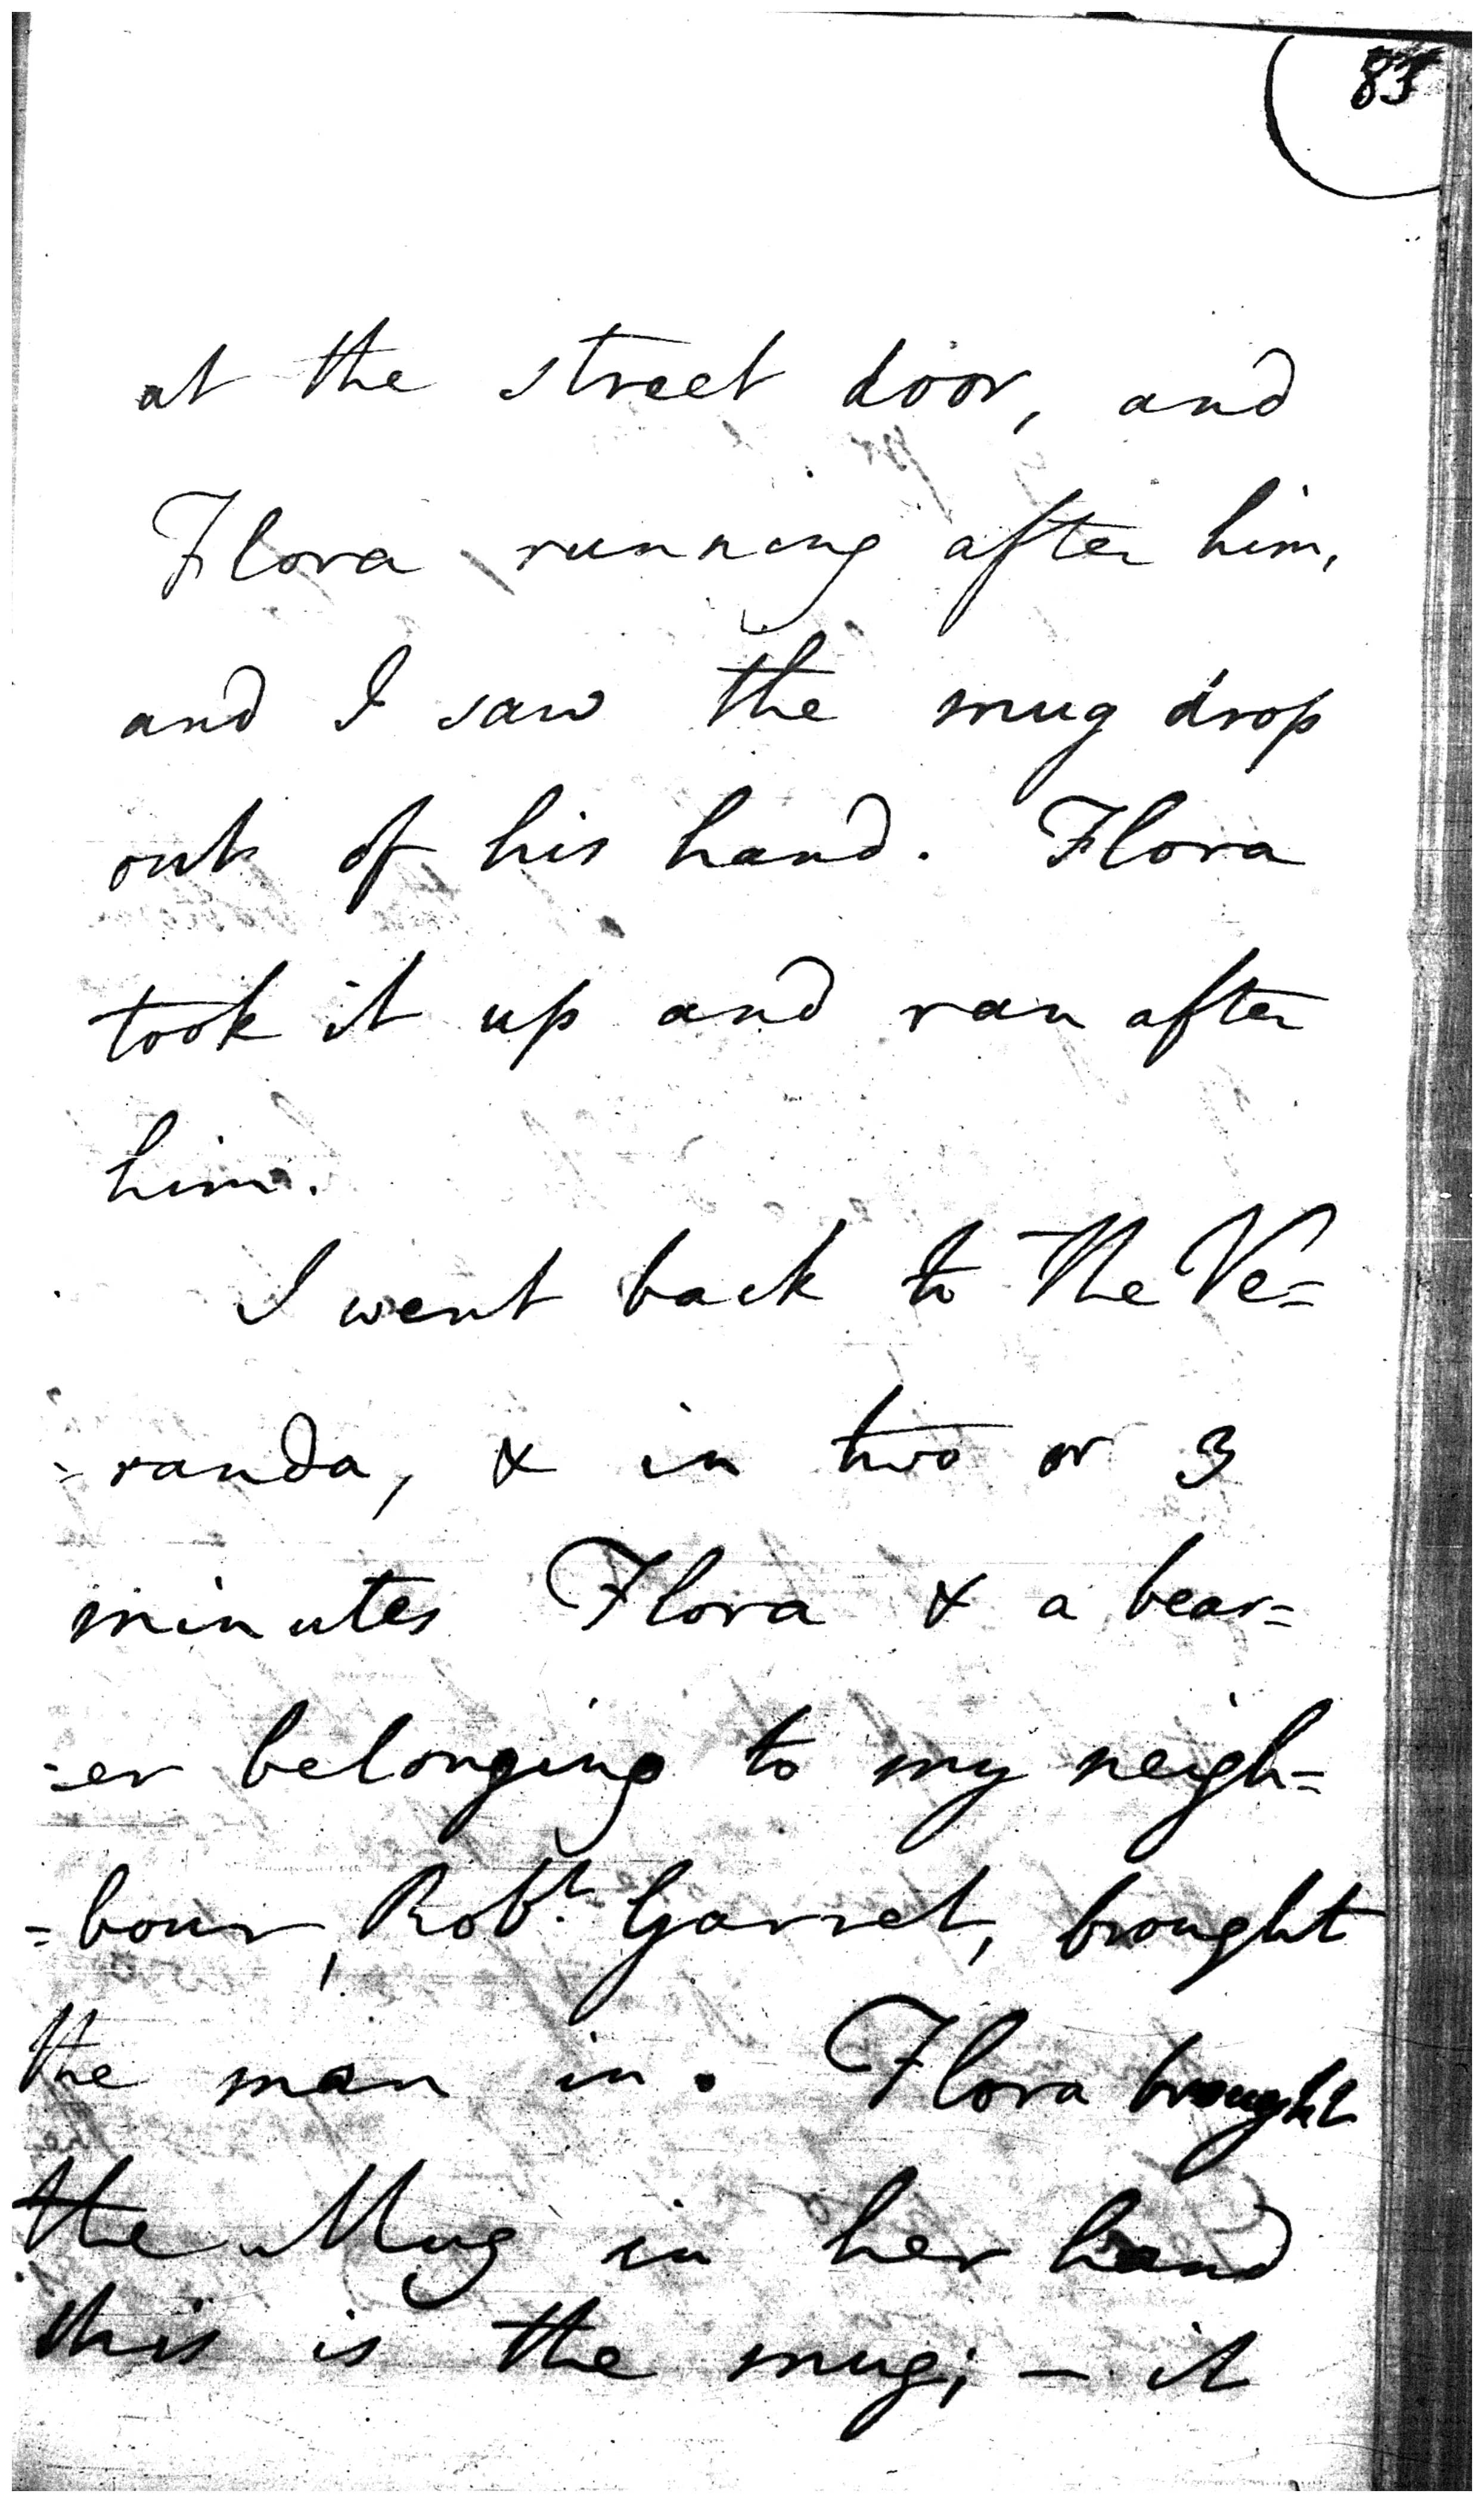 83
at the street door, and
Flora running after him,
and I saw the mug drop
out of his hand. Flora
took it up and ran after
him.
I went back to the Ve=
=randa, & in two or 3
minutes Flora & a bear=
=er belonging to my neigh=
=bour, Robt. Garret, brought
the man in. Flora brought
the Mug in her hand
this is the mug; — it